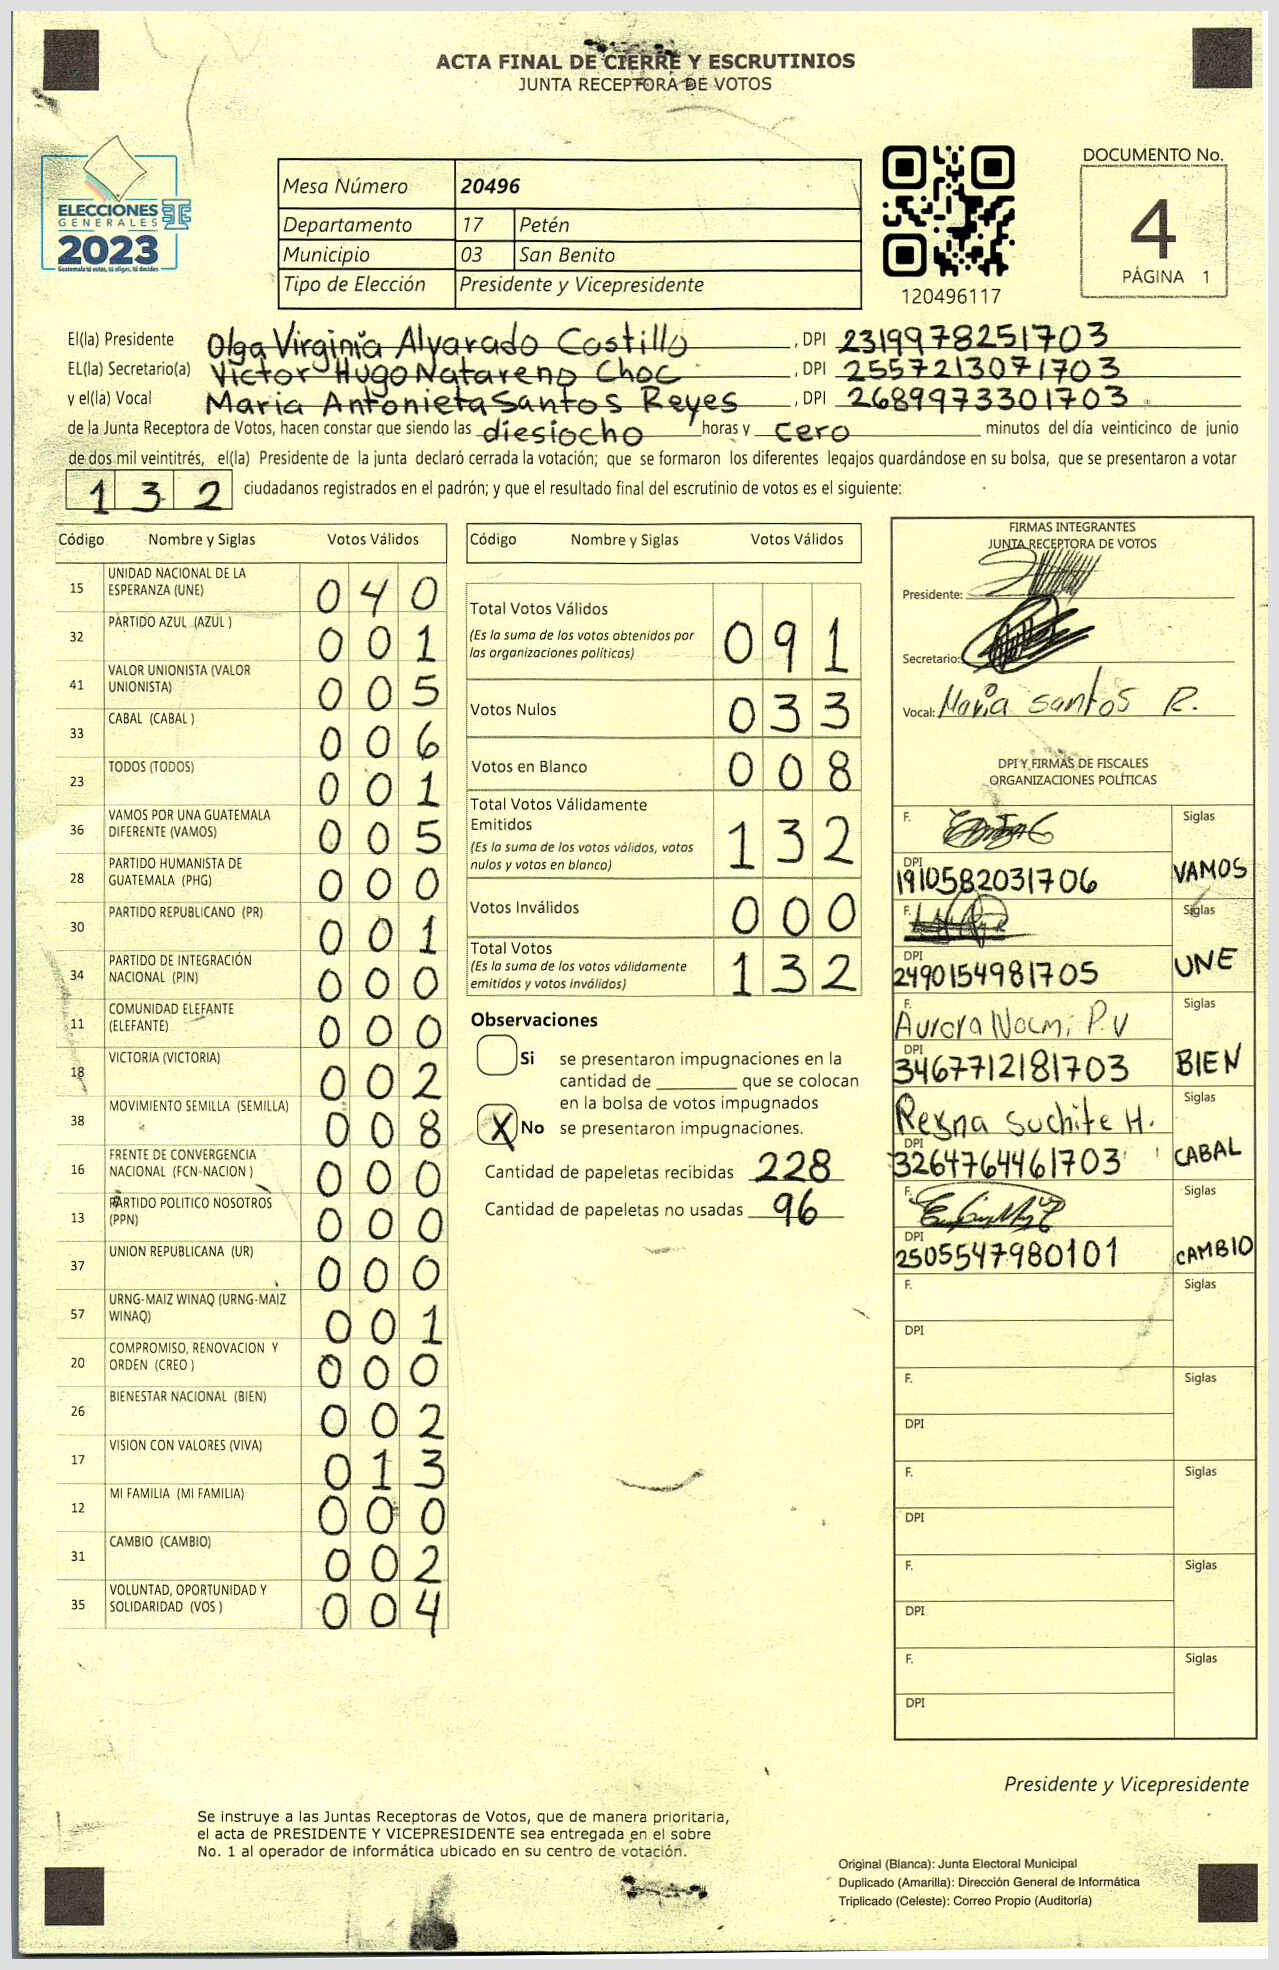 ACTA FINAL DE CIERRE Y ESCRUTINIOS
JUNTA RECEPTORA DE VOTOS
ELECCIONES
GENERALES
2023
Guatemala tú votas, tú eliges, tú decides
Mesa Número 20496
Departamento 17 Petén
Municipio 03 San Benito
Tipo de Elección Presidente y Vicepresidente
120496117
DOCUMENTO No.
4
PÁGINA 1
El(la) Presidente Olga Virginia Alvarado Castillo, DPI 2319978251703
EL(la) Secretario(a) Victor Hugo Natareno Choc, DPI 2557213071703
y el(la) Vocal Maria Antonieta Santos Reyes, DPI 2689973301703
de la Junta Receptora de Votos, hacen constar que siendo las diesiocho horas y cero minutos del día veinticinco de junio
de dos mil veintitrés, el(la) Presidente de la junta declaró cerrada la votación; que se formaron los diferentes legajos guardándose en su bolsa, que se presentaron a votar
132 ciudadanos registrados en el padrón; y que el resultado final del escrutinio de votos es el siguiente:
Código Nombre y Siglas Votos Válidos
15 UNIDAD NACIONAL DE LA ESPERANZA (UNE) 040
32 PARTIDO AZUL (AZUL ) 001
41 VALOR UNIONISTA (VALOR UNIONISTA) 005
33 CABAL (CABAL ) 006
23 TODOS (TODOS) 001
36 VAMOS POR UNA GUATEMALA DIFERENTE (VAMOS) 005
28 PARTIDO HUMANISTA DE GUATEMALA (PHG) 000
30 PARTIDO REPUBLICANO (PR) 001
34 PARTIDO DE INTEGRACIÓN NACIONAL (PIN) 000
11 COMUNIDAD ELEFANTE (ELEFANTE) 000
18 VICTORIA (VICTORIA) 002
38 MOVIMIENTO SEMILLA (SEMILLA) 008
16 FRENTE DE CONVERGENCIA NACIONAL (FCN-NACION ) 000
13 PARTIDO POLITICO NOSOTROS (PPN) 000
37 UNION REPUBLICANA (UR) 000
57 URNG-MAIZ WINAQ (URNG-MAIZ WINAQ) 001
20 COMPROMISO, RENOVACION Y ORDEN (CREO ) 000
26 BIENESTAR NACIONAL (BIEN) 002
17 VISION CON VALORES (VIVA) 013
12 MI FAMILIA (MI FAMILIA) 000
31 CAMBIO (CAMBIO) 002
35 VOLUNTAD, OPORTUNIDAD Y SOLIDARIDAD (VOS ) 004
Código Nombre y Siglas Votos Válidos
Total Votos Válidos 091
(Es la suma de los votos obtenidos por
las organizaciones políticas)
Votos Nulos 033
Votos en Blanco 008
Total Votos Válidamente
Emitidos 132
(Es la suma de los votos válidos, votos
nulos y votos en blanco)
Votos Inválidos 000
Total Votos 132
(Es la suma de los votos válidamente
emitidos y votos inválidos)
Observaciones
Si se presentaron impugnaciones en la
cantidad de ________ que se colocan
en la bolsa de votos impugnados
X No se presentaron impugnaciones.
Cantidad de papeletas recibidas 228
Cantidad de papeletas no usadas 96
FIRMAS INTEGRANTES
JUNTA RECEPTORA DE VOTOS
Presidente:
Secretario:
Vocal: Maria Santos R.
DPI Y FIRMAS DE FISCALES
ORGANIZACIONES POLÍTICAS
F. Siglas
DPI 1910582031706 VAMOS
F. Siglas
DPI 2490154981705 UNE
F. Aurora Noemi P.V Siglas
DPI 3467712181703 BIEN
Reyna Suchite H. Siglas
DPI 3264764461703 CABAL
F. Siglas
DPI 2505547980101 CAMBIO
F. Siglas
DPI
F. Siglas
DPI
F. Siglas
DPI
F. Siglas
DPI
F. Siglas
DPI
Presidente y Vicepresidente
Se instruye a las Juntas Receptoras de Votos, que de manera prioritaria,
el acta de PRESIDENTE Y VICEPRESIDENTE sea entregada en el sobre
No. 1 al operador de informática ubicado en su centro de votación.
Original (Blanca): Junta Electoral Municipal
Duplicado (Amarilla): Dirección General de Informática
Triplicado (Celeste): Correo Propio (Auditoría)